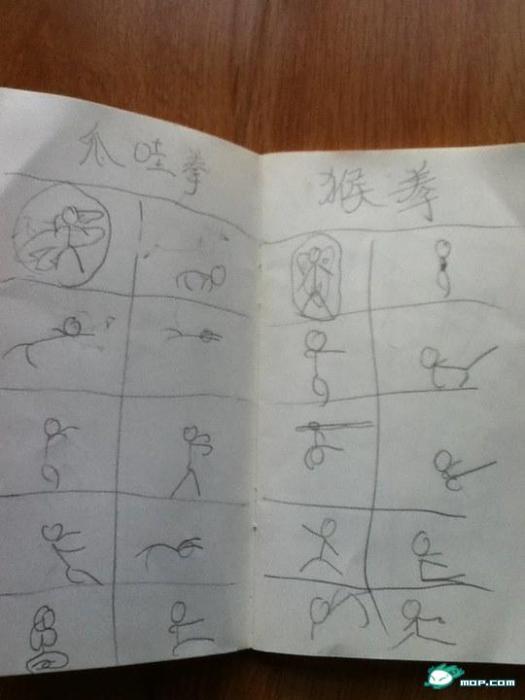 爪哇拳
猴拳
MOP.COM